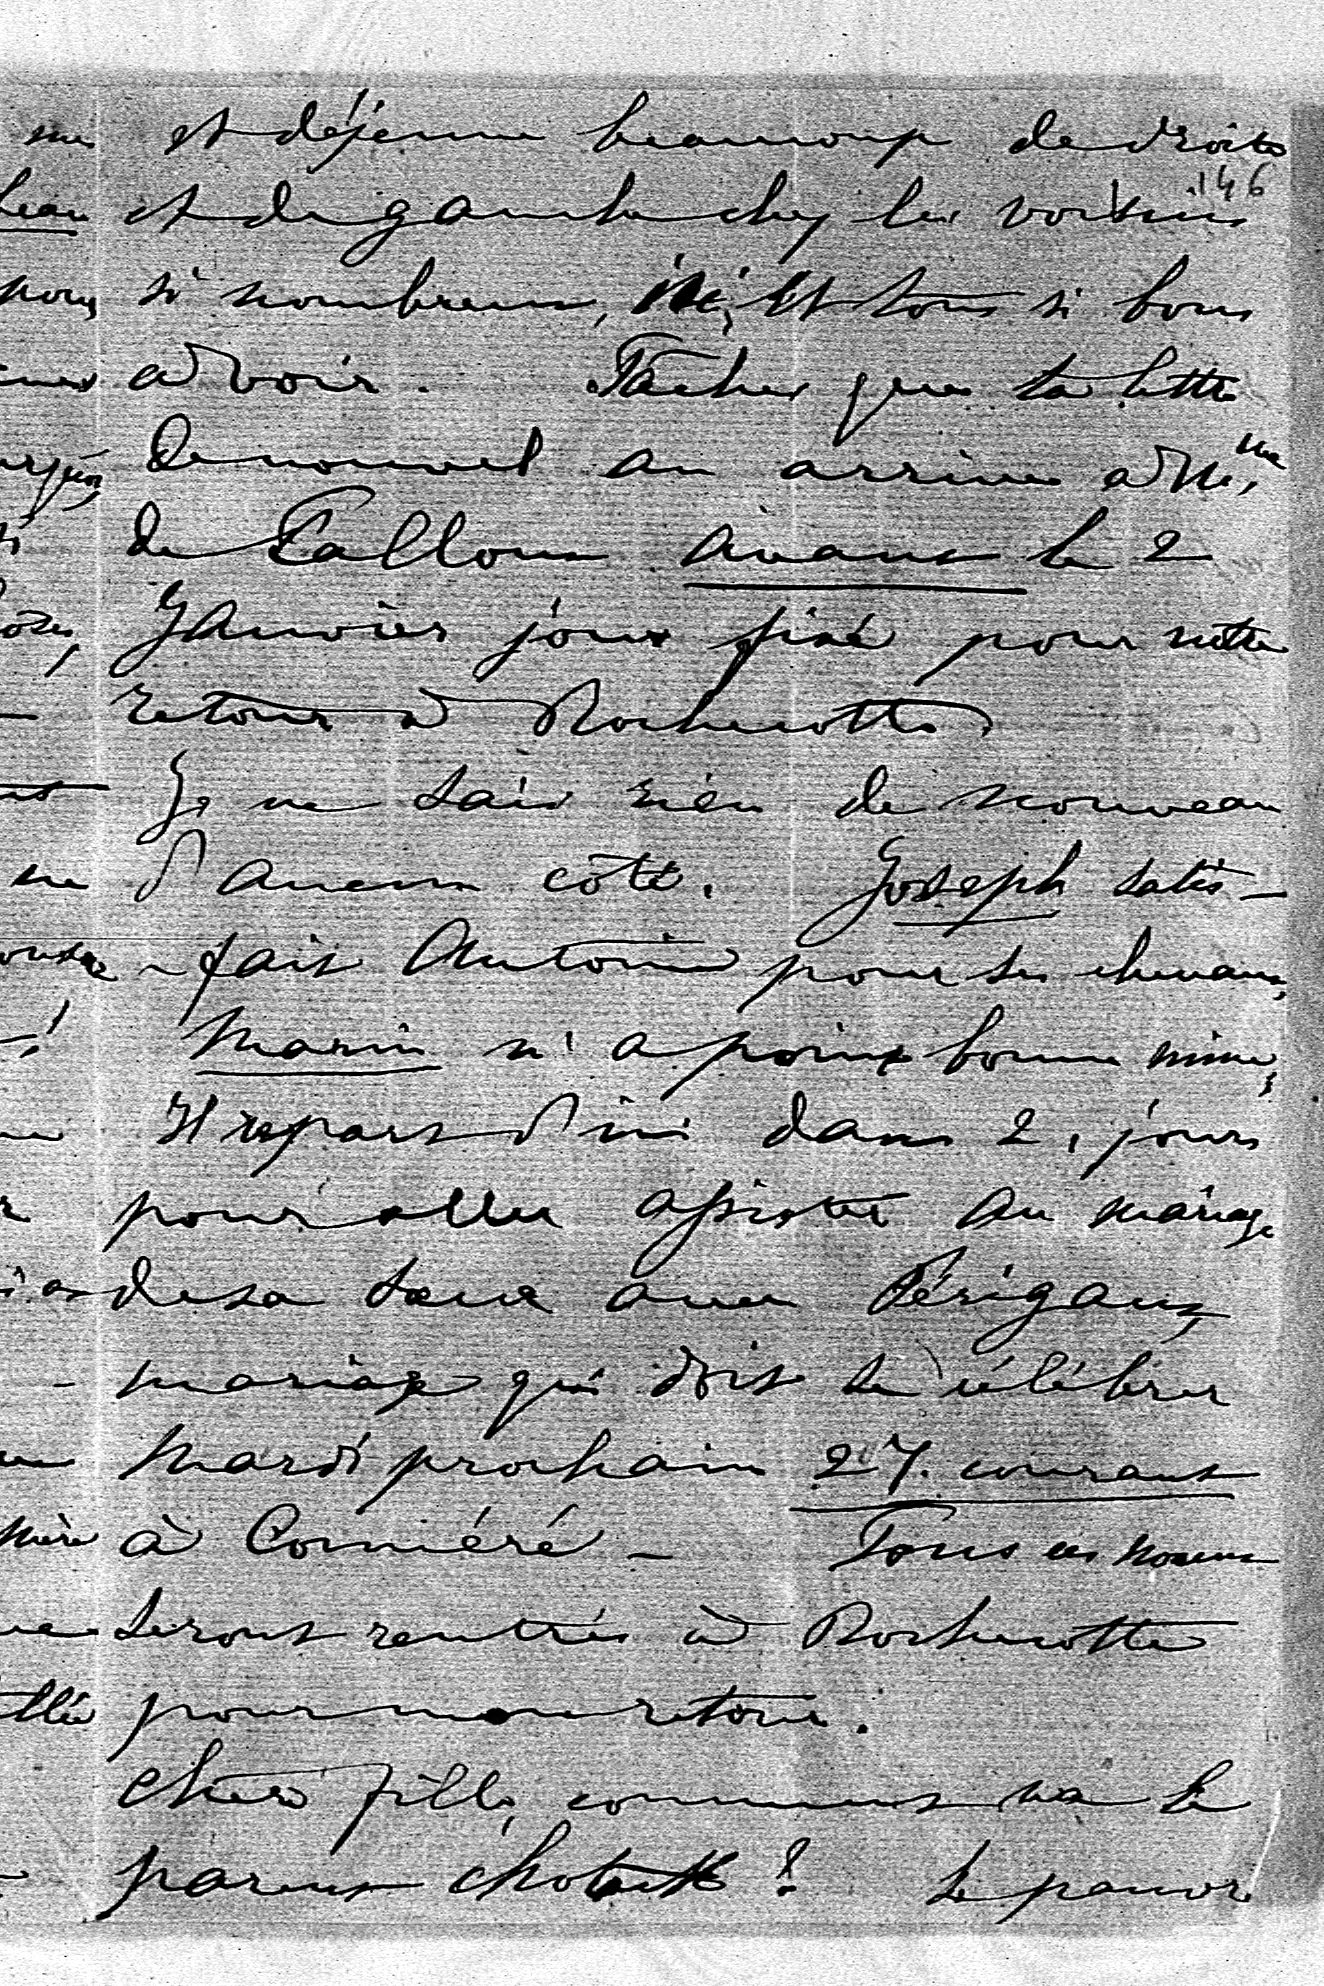 146
et déjeune beaucoup de droite
et de gauche chez les voisins
si nombreux, ici, Et tous si bons
à voir. Tâches que ta lettre
de nouvel an arrive à Me,
de Falloux avant le 2
Janvier jour fixé pour notre
retour à Rochecotte.
Je ne sais rien de nouveau
d'aucun côté. Joseph satis-
-fait Antoine pour ses chevaux,
Marin n'a point bonne mine,
Il repart d'ici dans 2, jours
pour aller assister au mariage
de sa soeur avec
mariage qui doit se célébrer
mardi prochain 27. courant
à Tous ces
seront rentrés à Rochecotte
pour mon retour.
Chère fille, comment va le
? Le pauvre